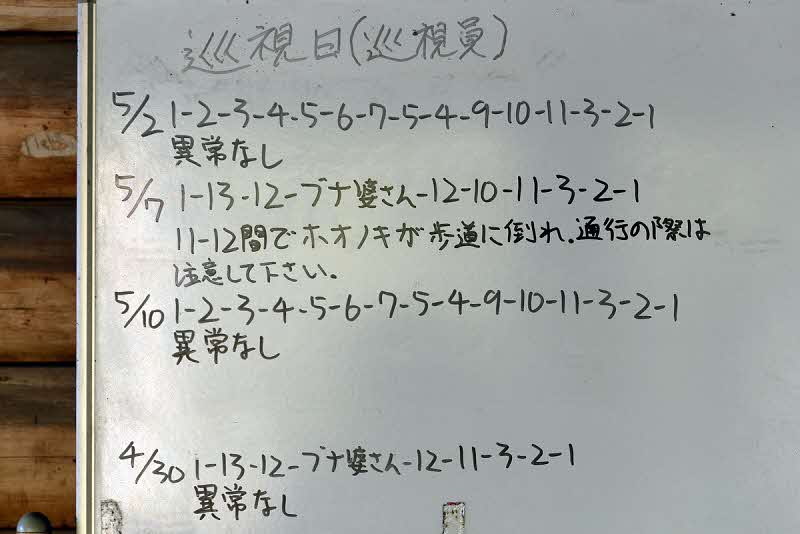 巡視日(巡視員)
5/2 1-2-3-4-5-6-7-5-4-9-10-11-3-2-1
異常なし
5/7 1-13-12-ブナ婆さん-12-10-11-3-2-1
11-12間でホオノキが歩道に倒れ.通行の際は
注意して下さい。
5/10 1-2-3-4-5-6-7-5-4-9-10-11-3-2-1
異常なし
4/30 1-13-12-ブナ婆さん-12-11-3-2-1
異常なし